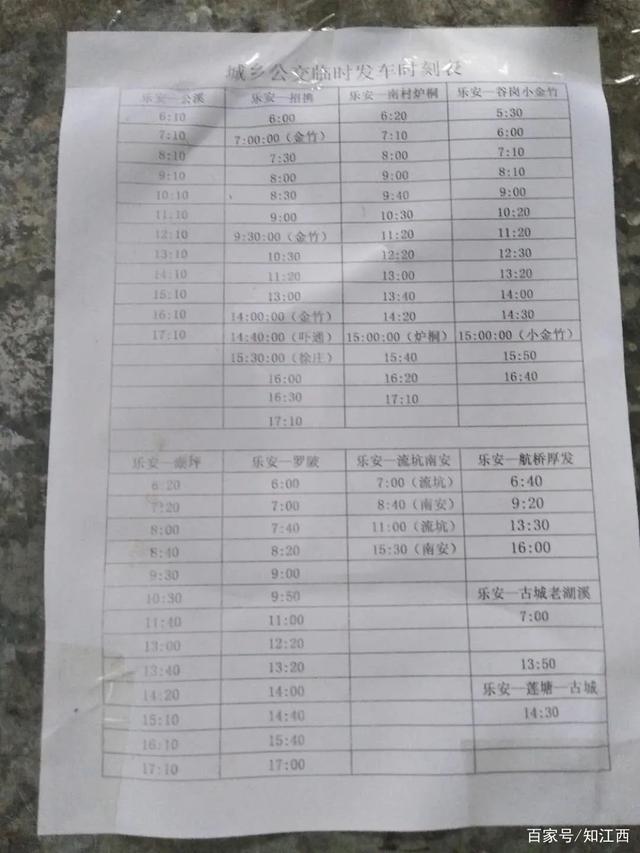 城乡公交临时发车时刻表
乐安—公溪 乐安—招携 乐安—南村炉桐 乐安—谷岗小金竹
6:10 6:00 6:20 5:30
7:10 7:00:00(金竹) 7:10 6:00
8:10 7:30 8:00 7:10
9:10 8:00 9:00 8:10
10:10 8:30 9:40 9:00
11:10 9:00 10:30 10:20
12:10 9:30:00(金竹) 11:20 11:20
13:10 10:30 12:20 12:30
14:10 11:20 13:00 13:20
15:10 13:00 13:40 14:00
16:10 14:00:00(金竹) 14:20 14:30
17:10 14:40:00(吓通) 15:00:00(炉桐) 15:00:00(小金竹)
15:30:00(徐庄) 15:40 15:50
16:00 16:20 16:40
16:30 17:10
17:10
乐安—坪 乐安—罗陂 乐安—流坑南安 乐安—航桥厚发
6:20 6:00 7:00(流坑) 6:40
7:20 7:00 8:40(南安) 9:20
8:00 7:40 11:00(流坑) 13:30
8:40 8:20 15:30(南安) 16:00
9:30 9:00
10:30 9:50 乐安—古城老湖溪
11:40 11:00 7:00
13:00 12:20
13:40 13:20 13:50
14:20 14:00 乐安—莲塘—古城
15:10 14:40 14:30
16:10 15:40
17:10 17:00
百家号/知江西